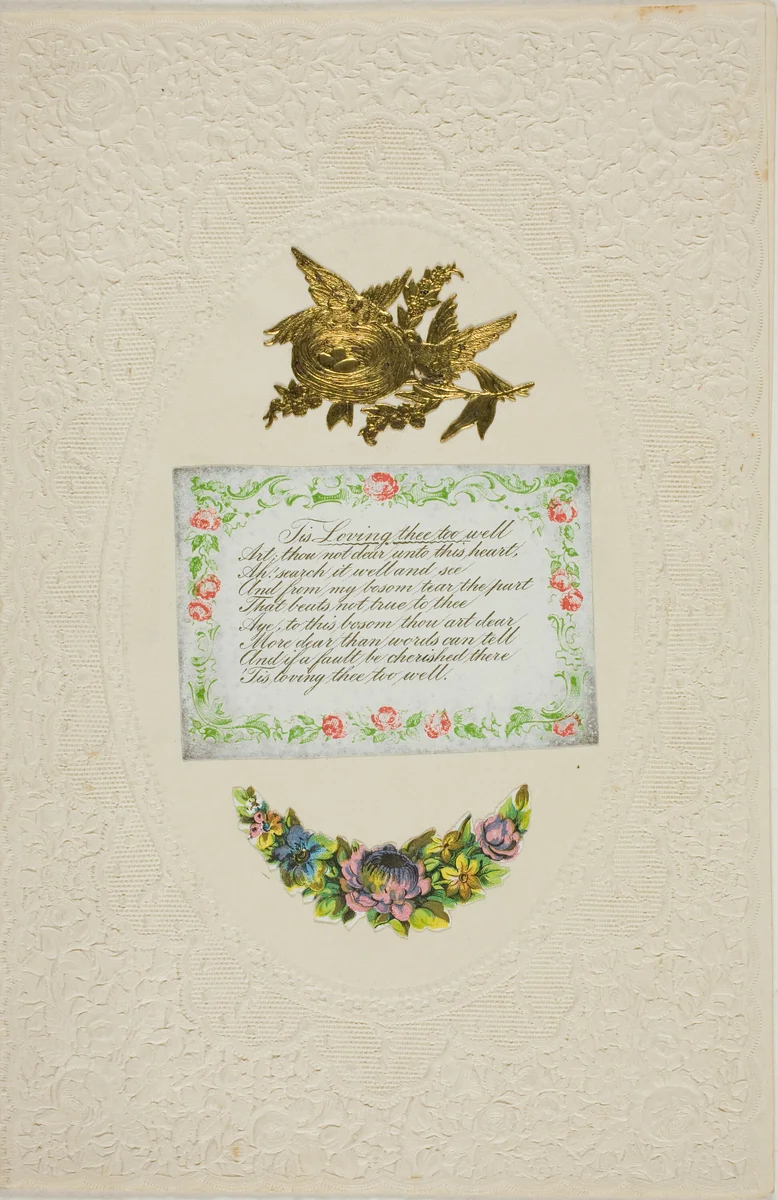 Tis Loving thee too well
Art, thou not dear unto this heart,
Ah! search it well and see
And from my bosom tear the part
That beats not true to thee
Aye, to this bosom thou art dear,
More dear than words can tell
And if a fault be cherished there
'Tis loving thee too well.